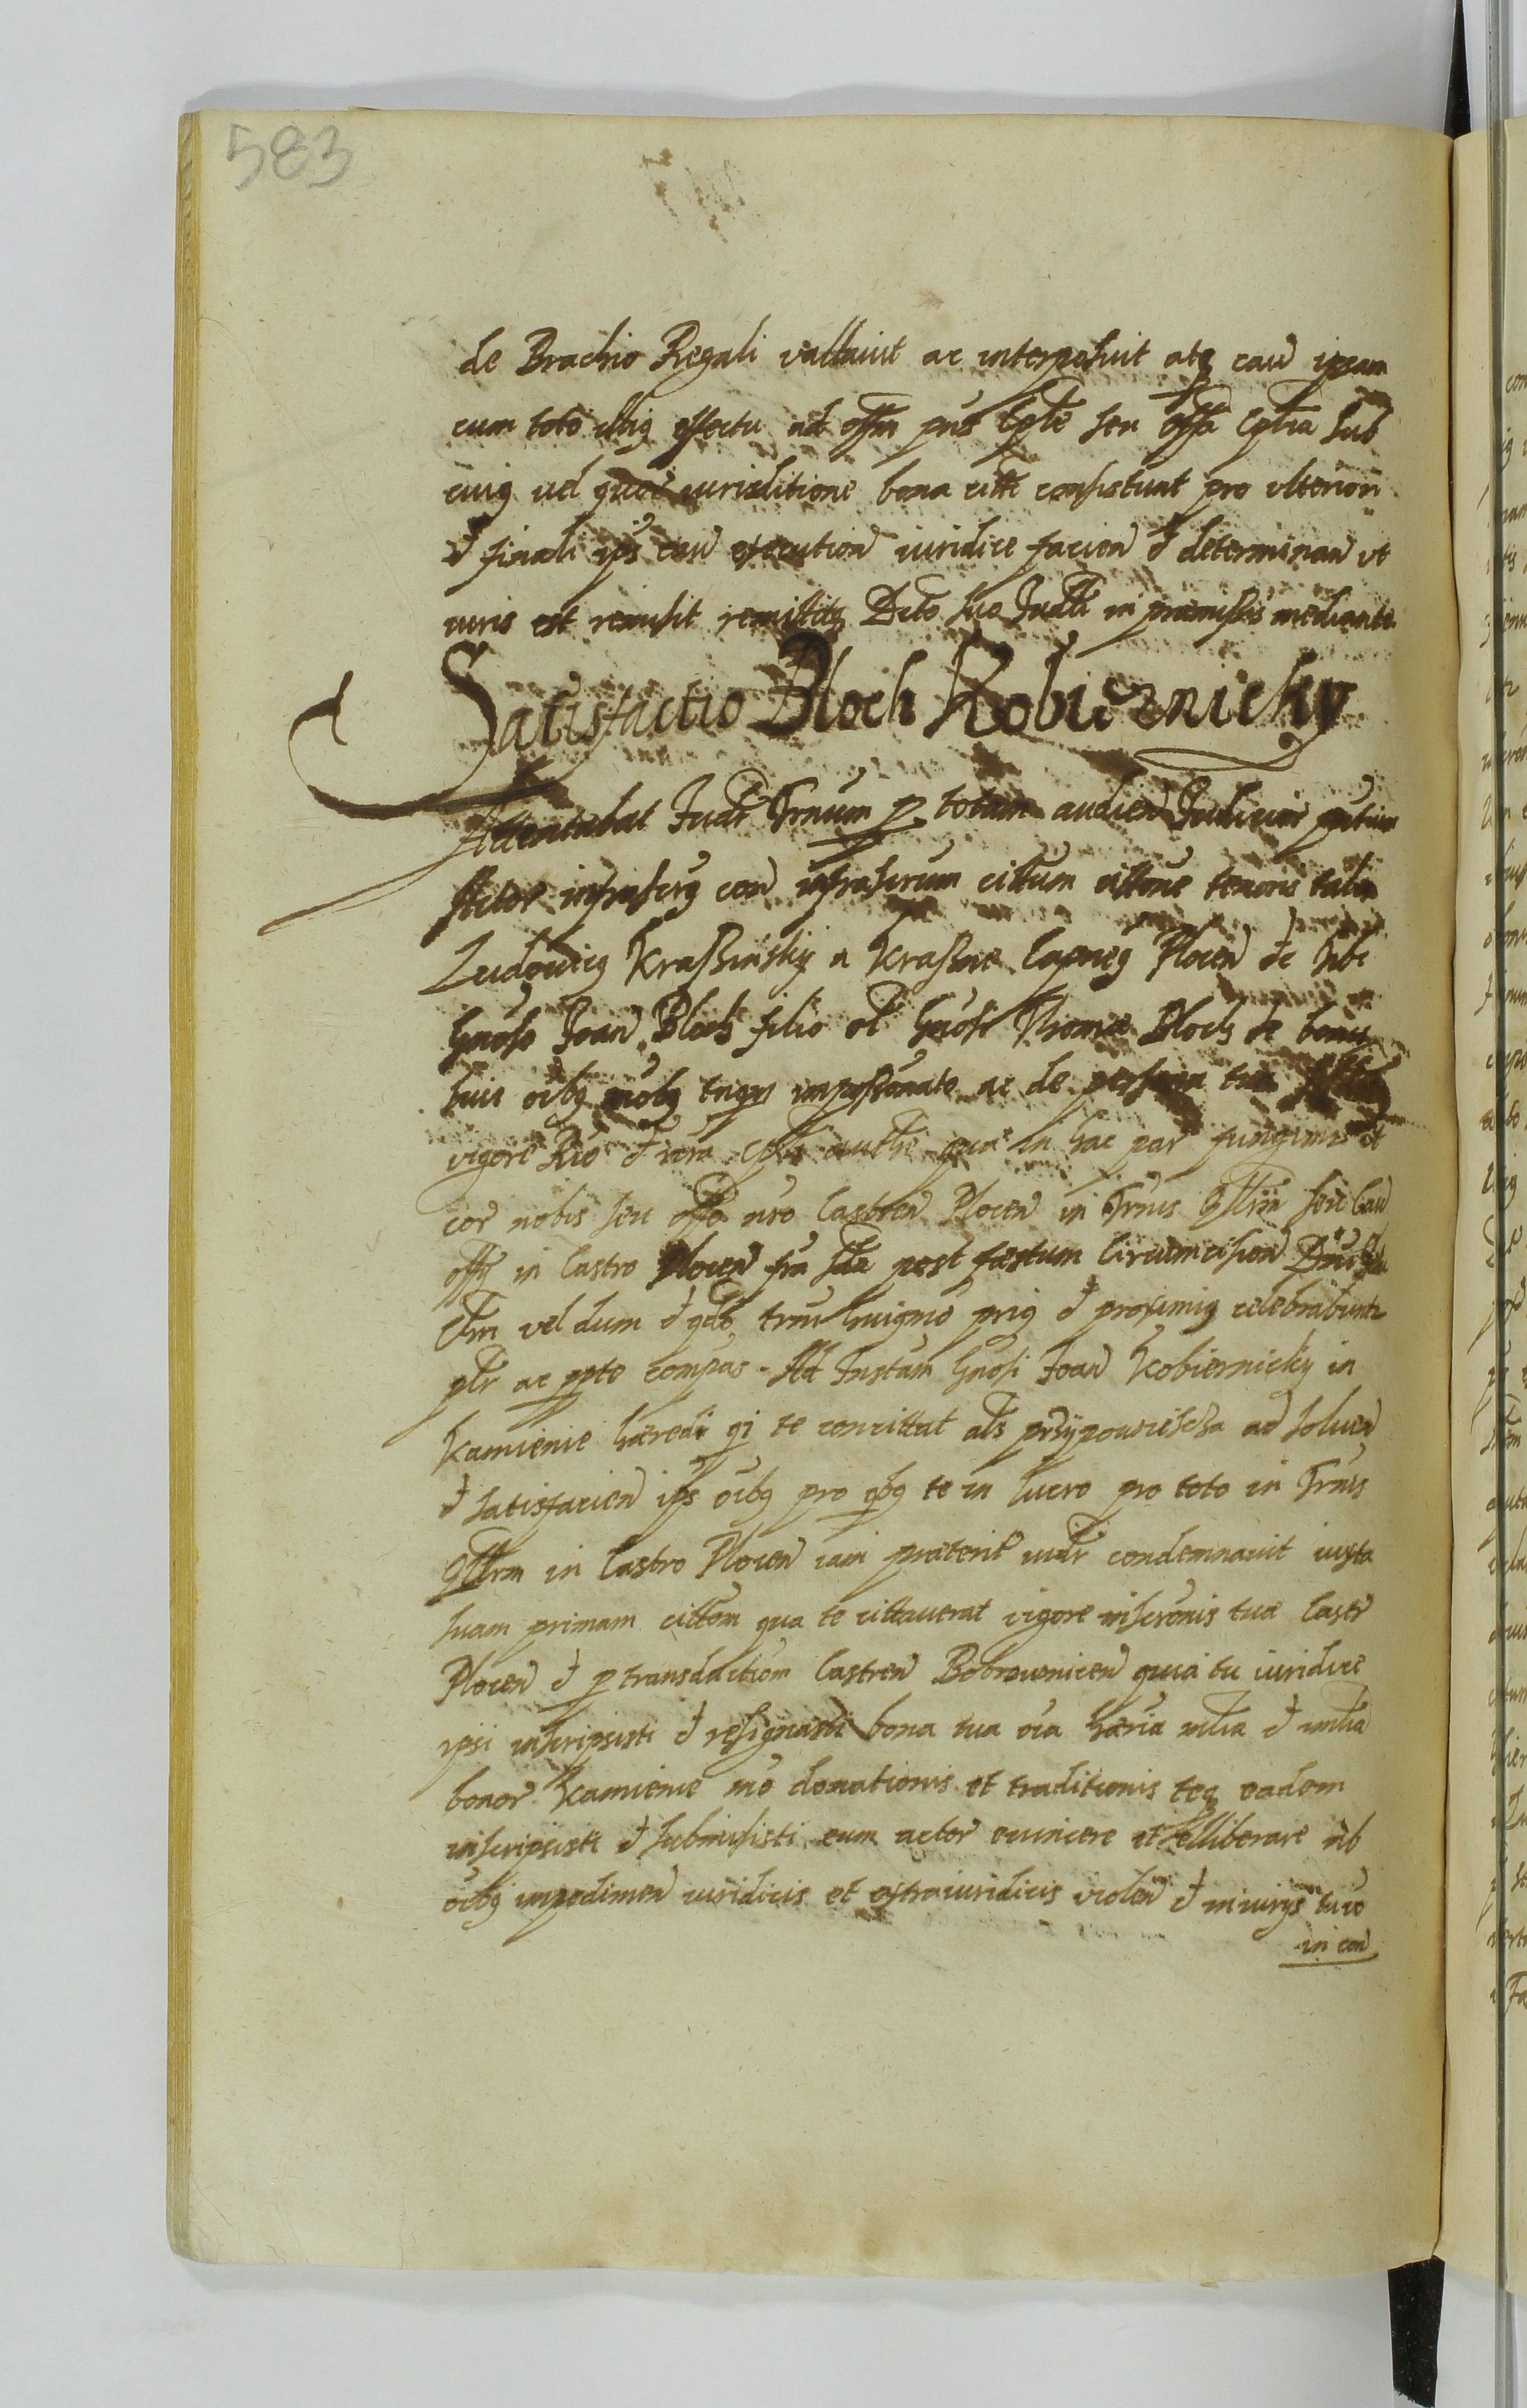 583
de Brachio Regali vallavit ac interposuit atq cau ipsam
cum toto illig effectu ad offm pns Cple seu offa Cplia sub
cuig vel iurisditione bona citti consistunt pro vlteriori
et finali ips cau execution iuridice facien et determinan vt
iuris est remisit remittitq Dcto suo Judli in præmissis mediante
Satisfactio Bloch Kobiernicky
Attentabat Judr Trnum p totam audien Judicior
Actor infrascrg con infrascrum cittum cittone tenoris talis
Ludovicg Krassinsky a Krassne Capneg Plocen etc tibi
Gnoso Joan Bloch filio ol Gnosi Thomæ Bloch de bonis
tuis oibg
vigore Rio et vera Cplis authe qua in hac par fungimur vt
cor nobis seu offo nro Castren Plocen in Trnis Qllrm seu Cau
offy in Castro Plocen fra 2da post fæstum Circumcision Dni
vel dum et qdo trni huigmo prig et proximig celebrabuntr
plr ac ppte compas. Ad Instam Gnosi Joan Kobiernicky in
Kamienie hæredi qi te concittat als przypowiescza ad solven
et satisfacien ips oibg pro qbg te in lucro pro toto in Trnis
Qllrm in Castro Plocen iam præterit iudr condemnavit iuxta
suam primam cittom qua te cittaverat vigore inscronis tuæ Castr
Plocen et p transductiom Castren Bobrownicen quia tu iuridice
ipsi inscripsisti et resignasti bona tua oia hæria mlia et imlia
bonor Kamienie mo donationis et traditionis teq eadem
inscripsisti et submisisti eum actor evincere et elliberare ab
oibg impedimen iuridicis et extraiuridicis violen et iniurys tuvo
in con